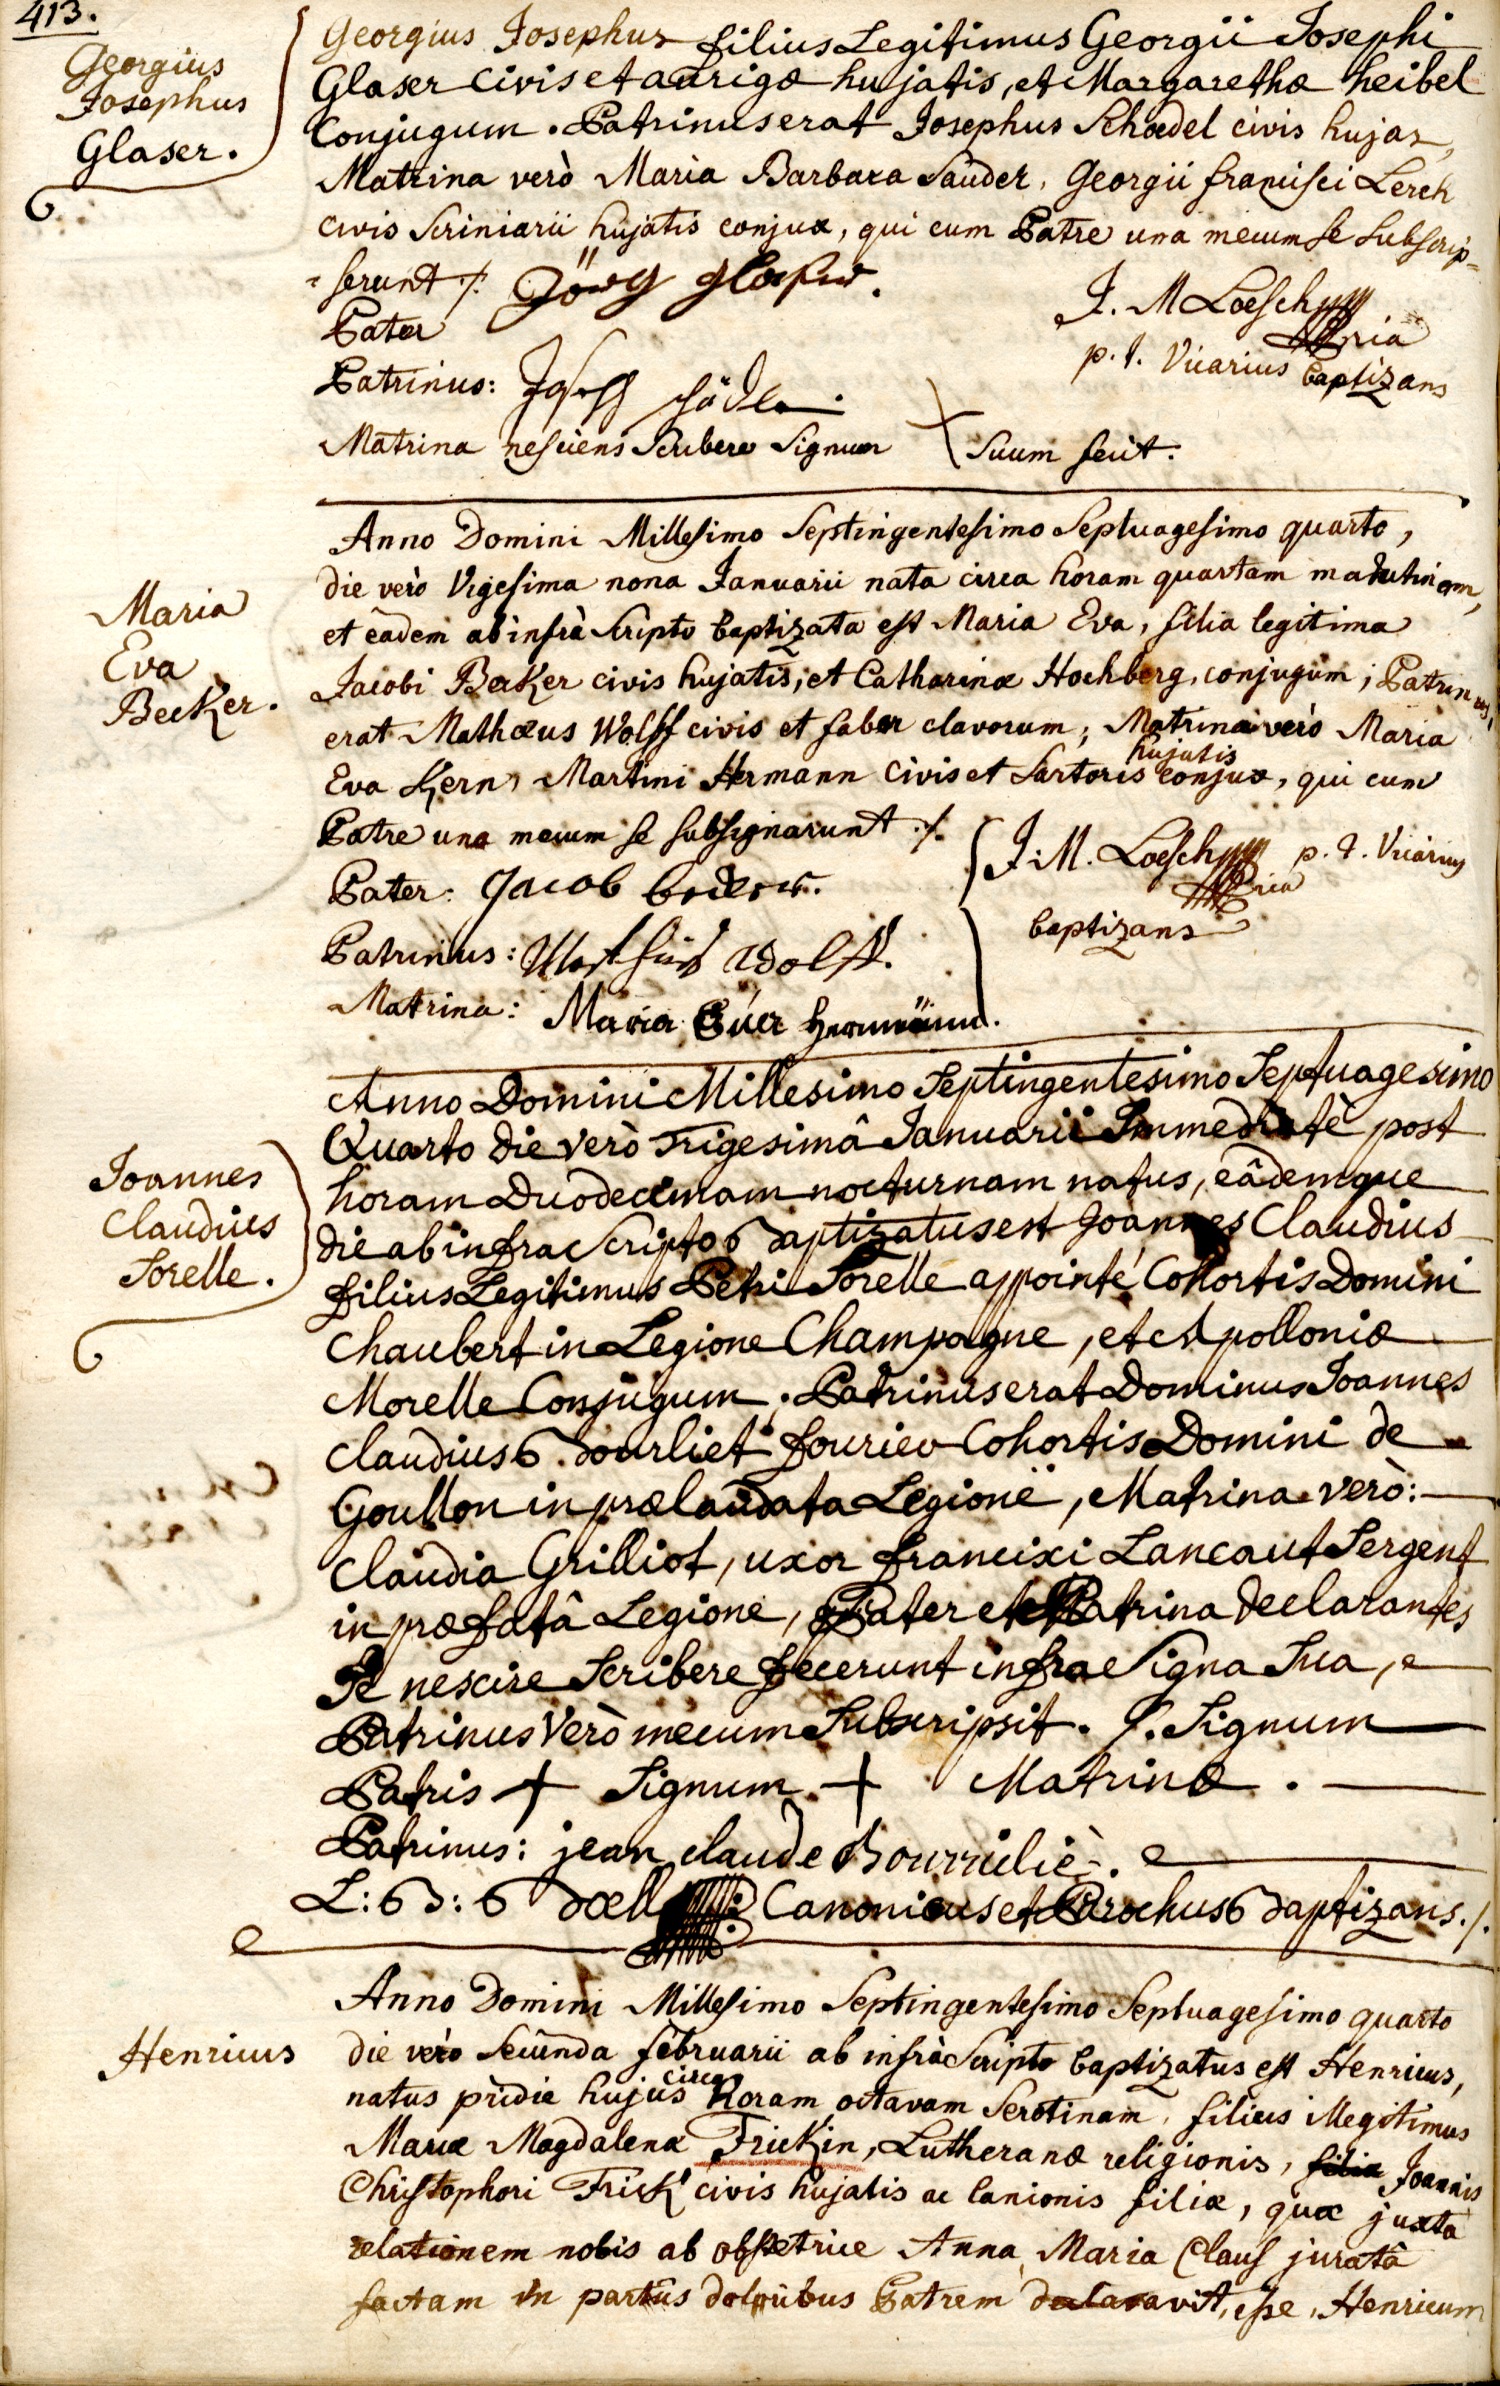 413.
Georgius
Josephus
Glaser.
Georgius Josephus filius Legitimus Georgii Josephi
Glaser civis et aurigæ hujatis, et Margarethæ Heibel
Conjugum. Patrinus erat Josephus Schoedel civis hujas,
Matrina verò Maria Barbara Sauder, Georgii francisci Lerch
civis Scriniarii hujatis conjux, qui cum Patre una mecum se subscrip=
=serunt ./.
Pater Jörg Glaser.
J. M Loesch
p. t. Vicarius baptizans
Patrinus: Joseph schödel.
Matrina nesciens scribere Signum + suum fecit.
Maria
Eva
Becker.
Anno Domini Millesimo Septingentesimo Septuagesimo quarto,
die verò Vigesima nona Januarii nata circa horam quartam matutinam,
et eâdem ab infrà Scripto baptizata est Maria Eva, filia legitima
Jacobi Becker civis hujatis, et Catharinæ Hochberg, conjugum; Patrinus
erat Mathæus Wolff civis et faber clavorum; Matrina verò Maria
Eva Kern, Martini Hermann civis et Sartoris hujatis conjux, qui cum
Patre una mecum se subsignarunt ./.
Pater: Jacob becker.
J. M. Loesch p. t. Vicarius
baptizans
Patrinus: Mathias Wolff.
Matrina: Maria Eva Hermännin.
Joannes
Claudius
Sorelle.
Anno Domini Millesimo Septingentesimo Septuagesimo
Quarto die verò Trigesimâ Januarii Immediatè post
horam Duodecimam nocturnam natus, eâdemque
die ab infra Scripto Baptizatus est Joannes Claudius
filius Legitimus Petri Sorelle appointé Cohortis Domini
Chaubert in Legione Champagne, et Apolloniæ
Morelle Conjugum. Patrinus erat Dominus Joannes
Claudius Bourliet fourier Cohortis Domini de
Goullon in prælaudata Legione, Matrina verò:
Claudia Grilliot, uxor francixi Lancaut Sergent
in præfatâ Legione, Pater et Matrina declarantes
Se nescire Scribere fecerunt infra Signa Sua,
Patrinus Verò mecum Subscripsit. ./. Signum
Patris + Signum + Matrinæ.
Patrinus: jean claude Bourrieliè.
L: B: Boell Canonicus et Parochus Baptizans./.
Henricus
Anno Domini Millesimo Septingentesimo Septuagesimo quarto
die verò secunda februarii ab infrà Scripto baptizatus est Henricus,
natus pridie hujus circa horam octavam Serotinam, filius illegitimus
Mariæ Magdalenæ Frickin, Lutheranæ religionis, filiæ Joannis
Christophori Frick civis hujatis ac lanionis filiæ, quæ juxta
relationem nobis ab obstetrice Anna Maria Claus juratâ
factam in partûs doloribus Patrem declaravit, esse, Henricum